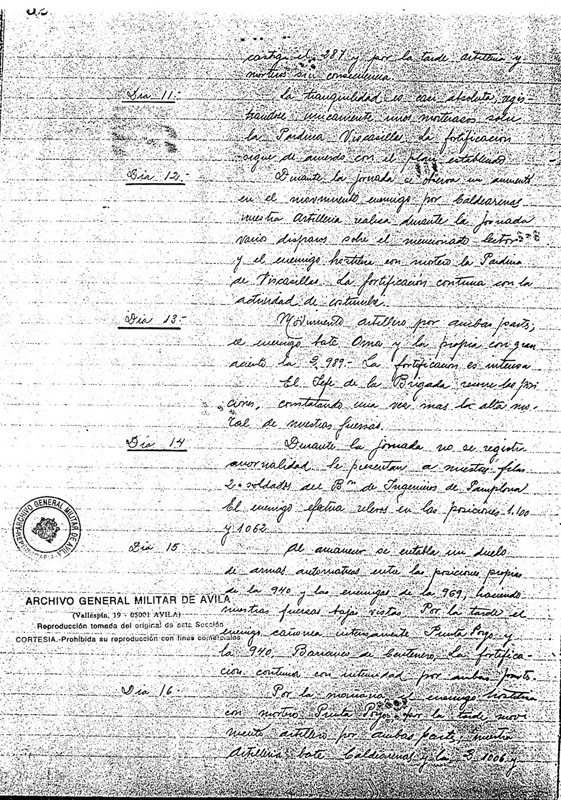 castiga el 287 y por la tarde artilleria y
mortero sin consecuencia.
Dia 11.-
La tranquilidad es casi absoluta, regis-
trandose unicamente unos morterazos sobre
la Pardina Viscasilla. La fortificacion
sigue de acuerdo con el plan establecido
Dia 12.-
Durante la jornada se observa un aumento
en el movimiento enemigo por Caldearenas
nuestra Artilleria realiza durante la jornada
varios disparos sobre el mencionado sector
y el enemigo hostiliza con mortero la Pardina
de Viscasillas. La fortificacion continua con la
actividad de costumbre.
Dia 13.-
Movimiento artillero por ambas partes,
el enemigo bate Orna y la propia con gran
acierto la 989.- La fortificacion es intensa
El Jefe de la Brigada recorre las posi-
ciones, constatando una vez mas la alta mo-
ral de nuestras fuerzas.
Dia 14
Durante la jornada no se registra
anormalidad. Se presentan a nuestras filas
2 soldados del Bon de Ingenieros de Pamplona
El enemigo efectua relevos en las posiciones 1.100
y 1062.
Dia 15
Al amanecer se entabla un duelo
de armas automaticas entre las posiciones propias
de la 940 y las enemigas de la 969, haciendo
nuestras fuerzas bajas vistas. Por la tarde el
enemigo cañonea intensamente Punta Poyo y
la 940, Barranco de Centenero, La fortifica-
cion continua con intensidad por ambas partes.
Dia 16
Por la mañana el enemigo hostiliza
con mortero Punta Poyo, por la tarde movi-
miento artillero por ambas partes, nuestra
Artilleria bate Caldearenas y la 1006 y
ARCHIVO GENERAL MILITAR DE AVILA
ARCHIVO GENERAL MILITAR DE AVILA
(Vallespin, 19 - 05001 AVILA)
Reproducción tomada del original de esta Sección
CORTESIA.-Prohibida su reproducción con fines comerciales